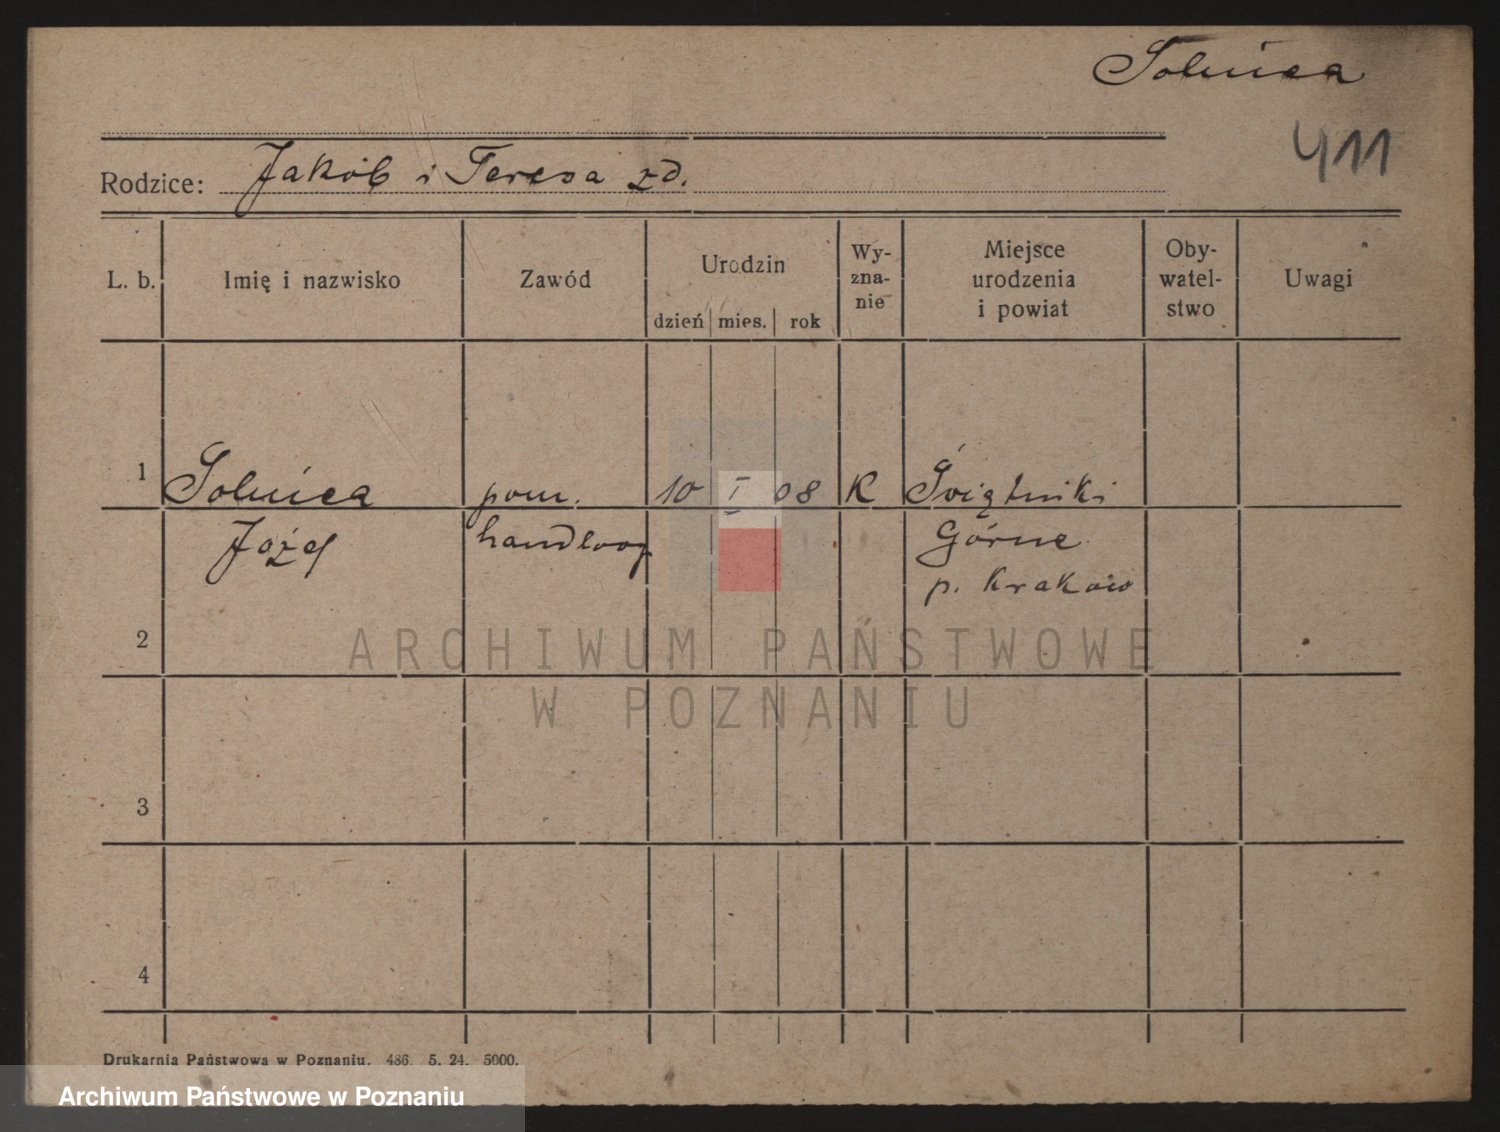 Solnica
411
Rodzice: Jakób i Teresa zd.
L. b.
Imię i nazwisko
Zawód
Urodzin
dzień mies. rok
Wy-
zna-
nie
Miejsce
urodzenia
i powiat
Oby-
watel-
stwo
Uwagi
1 Solnica pom. 10 I 08 K Świątniki
Józef handlowy Górne
p. Kraków
2
3
4
ARCHIWUM PAŃSTWOWE
W POZNANIU
Drukarnia Państwowa w Poznaniu. 486. 5. 24. 5000.
Archiwum Państwowe w Poznaniu